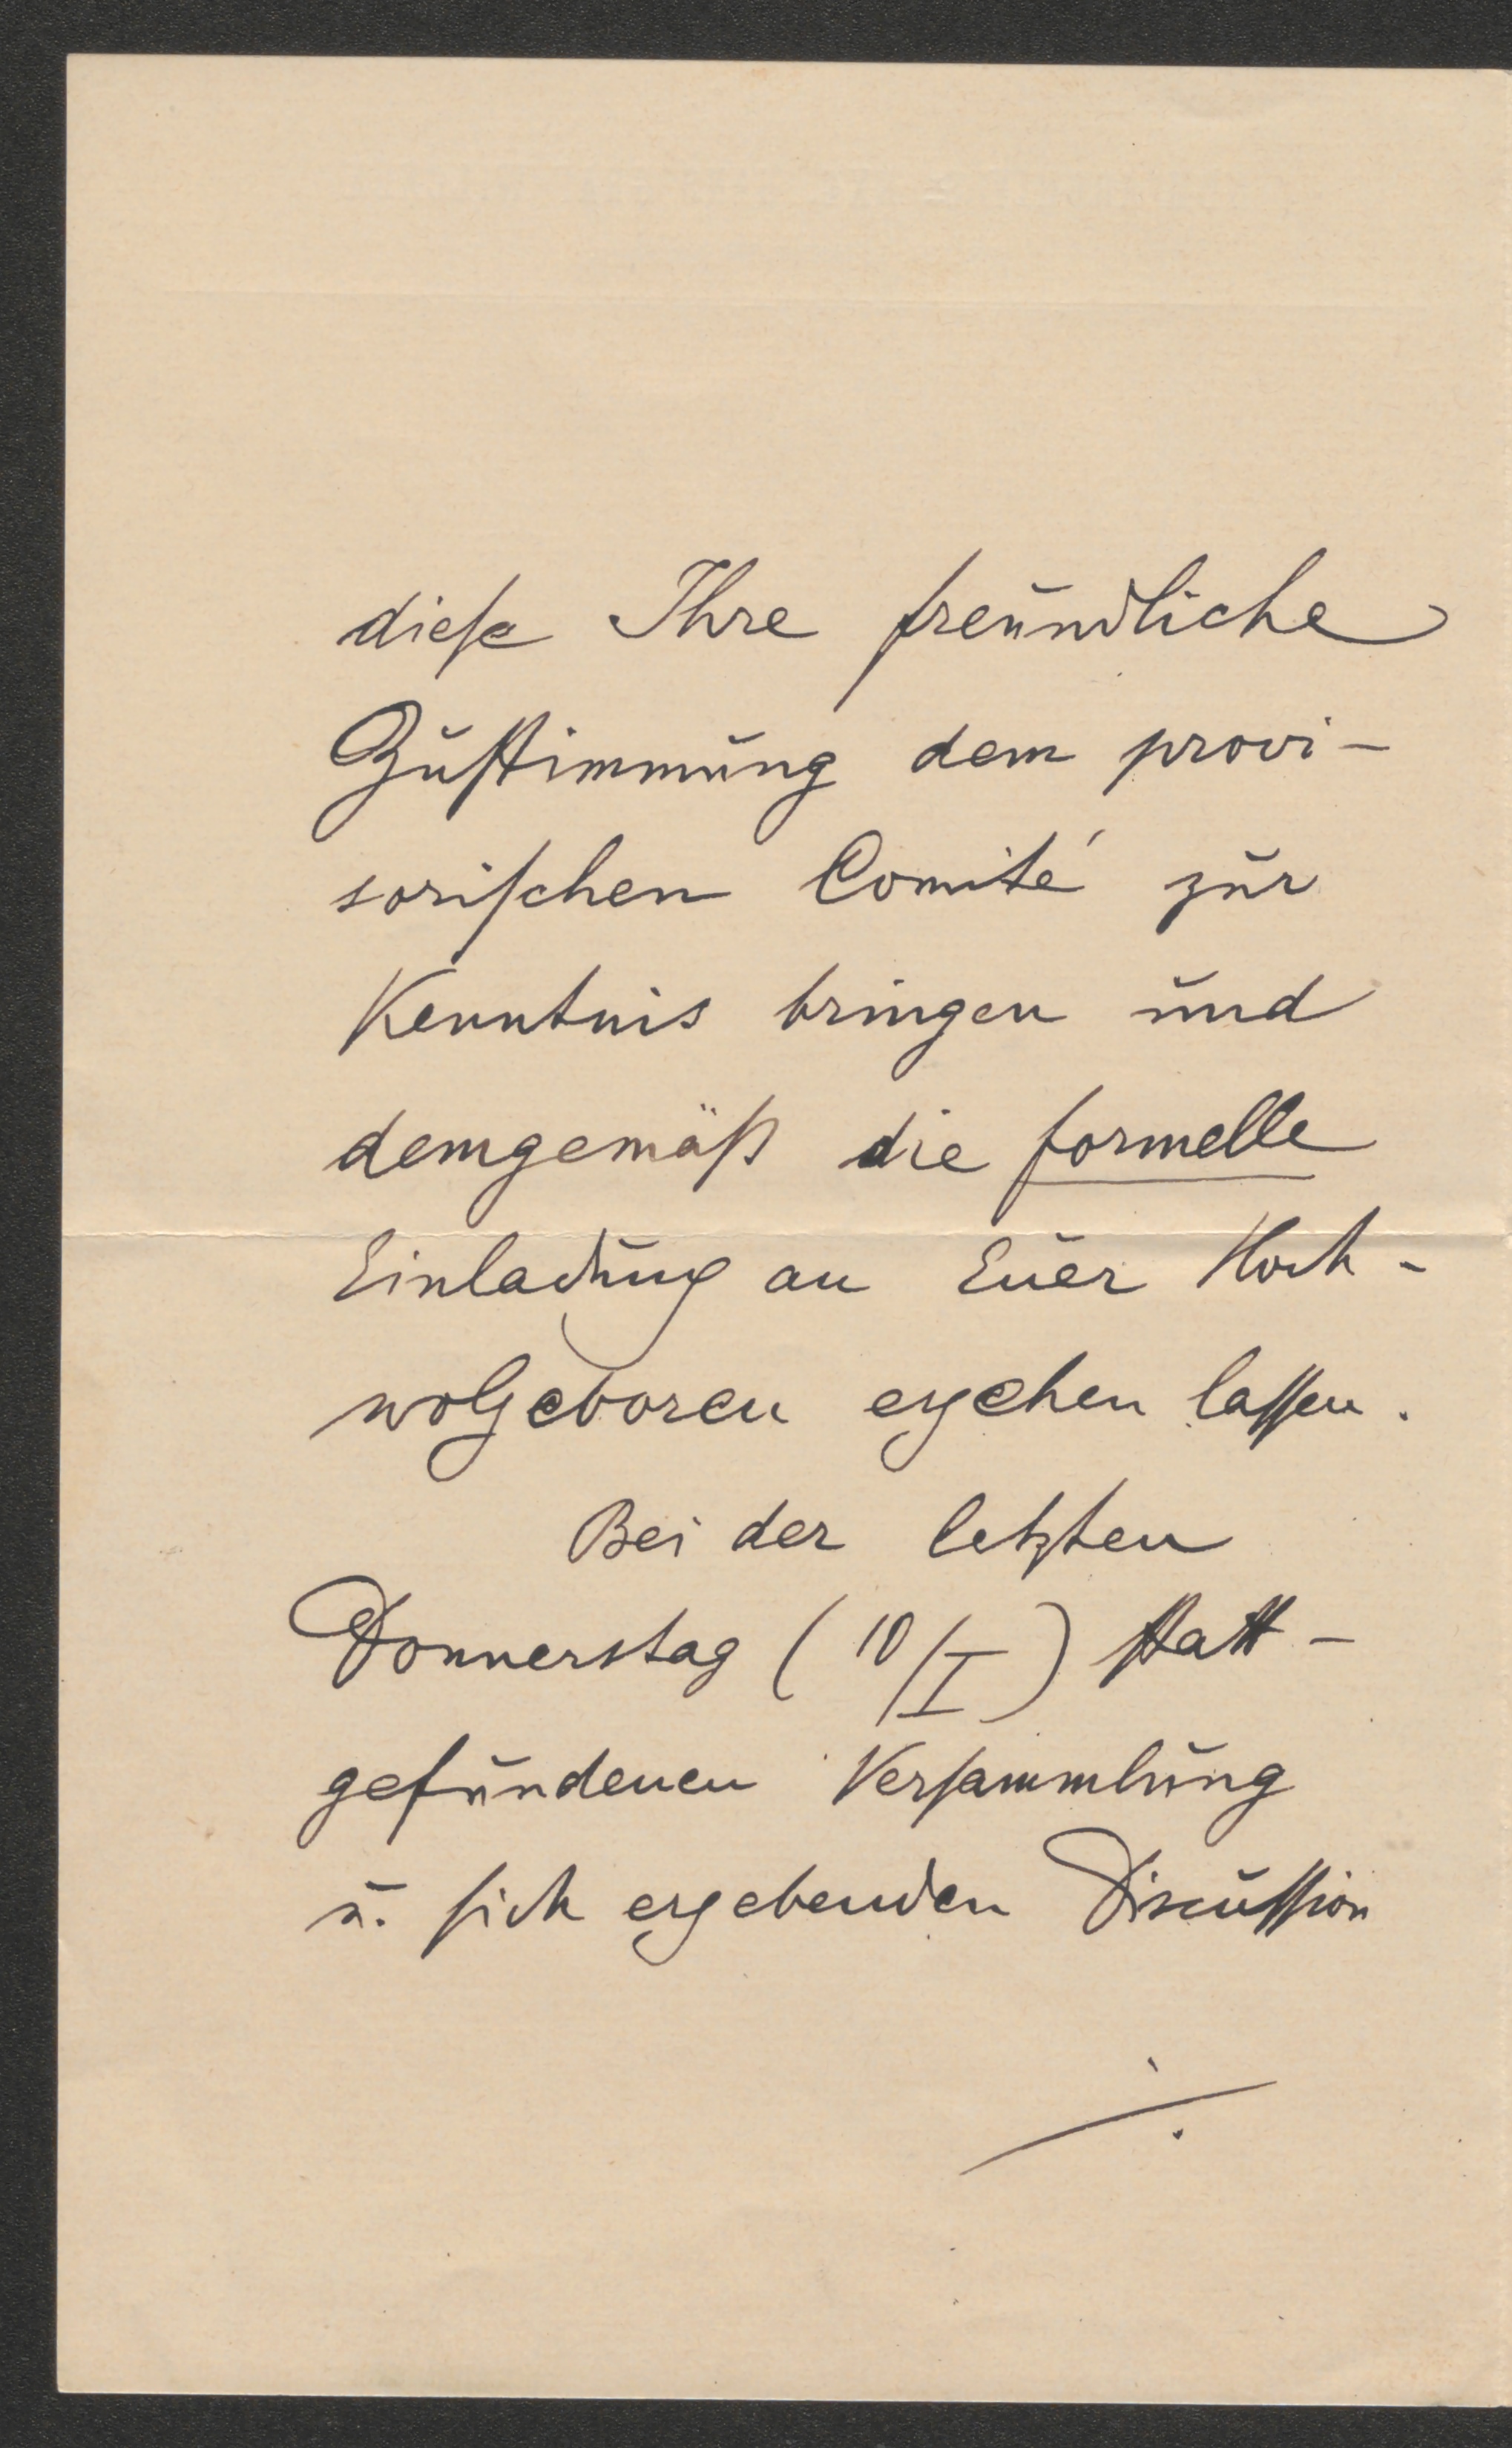 dieſe Ihre freundliche
Zuſtimmung dem provi-
soriſchen Comité zur
Kenntnis bringen und
demgemäß die formelle
Einladung an Euer Hoch-
wolgeboren ergehen laſſen.
Bei der letzten
Donnerstag (10/I) ſtatt-
gefundenen Verſammlung
u. ſich ergebenden Discuſſion
./.